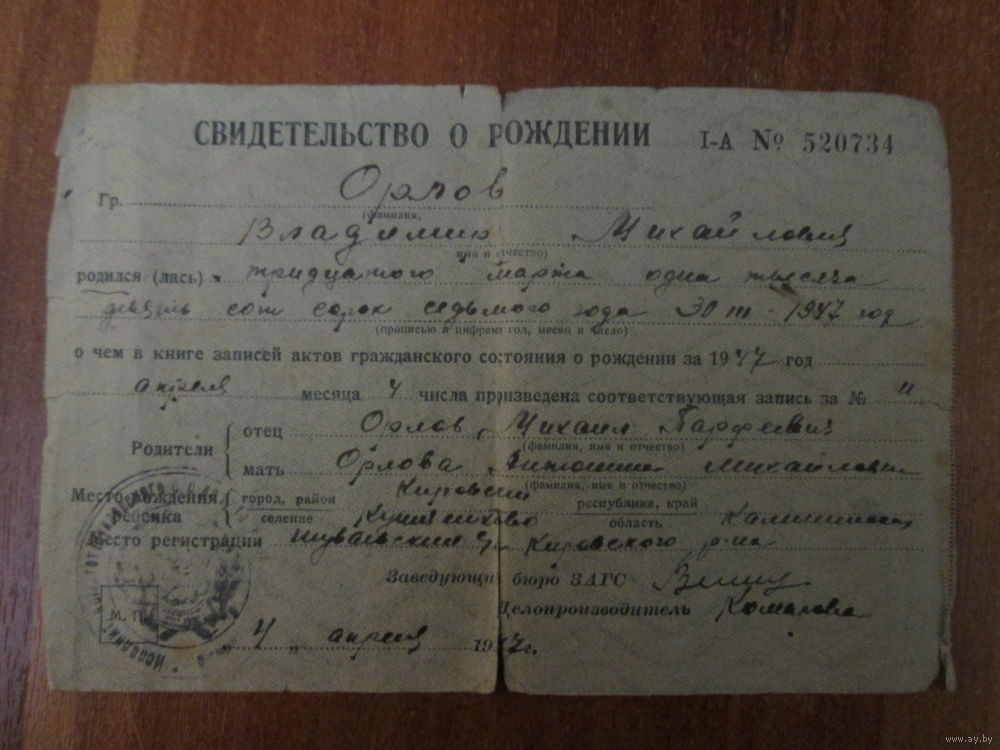 СВИДЕТЕЛЬСТВО О РОЖДЕНИИ I-А № 520734
Гр. Орлов
(фамилия,
Владимир Михайлович
имя и отчество)
родился (лась) тридцатого марта одна тысяча
девять сот сорок седьмого года 30 III - 1947 год
(прописью и цифрами год, месяц и число)
о чем в книге записей актов гражданского состояния о рождении за 1947 год
апреля месяца 4 числа произведена соответствующая запись за № 11
Родители отец Орлов, Михаил Парфевич
(фамилия, имя и отчество)
мать Орлова Михайловна
(фамилия, имя и отчество)
Место рождения ребенка город, район Кировский республика, край
селение область
Место регистрации Кировского р-на
Заведующий бюро ЗАГС
Делопроизводитель Комарова
М. П.
„ 4 „ апреля 1947г.
www.ay.by